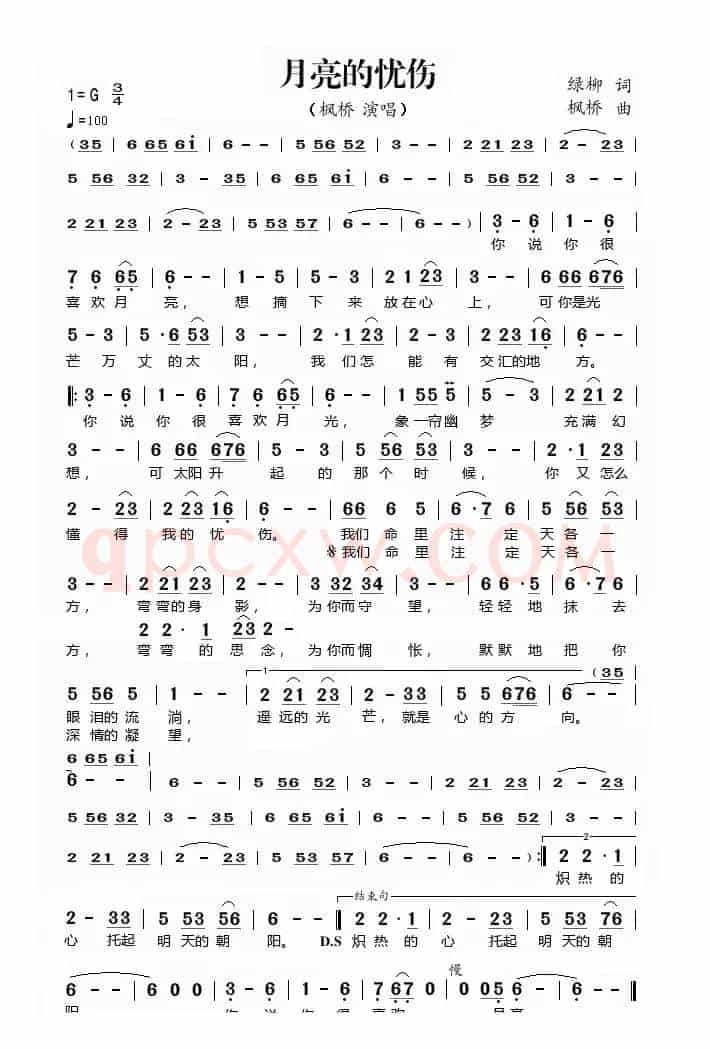 月亮的忧伤
1=G 3/4
♩=100
（枫桥 演唱）
绿柳 词
枫桥 曲
(35 | 6 65 6i | 6 - - | 5 56 52 | 3 - - | 2 21 23 | 2 - 23 |
5 56 32 | 3 - 35 | 6 65 6i | 6 - - | 5 56 52 | 3 - - |
2 21 23 | 2 - 23 | 5 53 57 | 6 - - | 6 - - ) | 3 - 6 | 1 - 6 |
你 说 你 很
7 6 65 | 6 - - | 1 - 5 | 5 - 3 | 2 1 23 | 3 - - | 6 66 676 |
喜 欢 月 亮， 想 摘 下 来 放在心 上， 可 你是光
5 - 3 | 5· 6 53 | 3 - - | 2· 1 23 | 2 - 3 | 2 23 16 | 6 - - |
芒 万 丈 的 太 阳， 我 们 怎 能 有 交 汇的地 方。
‖: 3 - 6 | 1 - 6 | 7 6 65 | 6 - - | 1 55 5 | 5 - 3 | 2 21 2 |
你 说 你 很 喜 欢 月 光， 象 一帘幽 梦 充 满 幻
3 - - | 6 66 676 | 5 - 3 | 5 56 53 | 3 - - | 2· 1 23 |
想， 可 太阳 升 起 的 那 个 时 候， 你 又 怎么
2 - 23 | 2 23 16 | 6 - - | 66 6 5 | 6· 7 6 | 5 56 53 |
懂 得 我 的 忧 伤。 我们 命 里 注 定 天 各 一
※我们 命 里 注 定 天 各 一
qpcxw.com
3 - - | 2 21 23 | 2 - - | 3 32 34 | 3 - - | 66 6· 5 | 6· 7 6 |
方， 弯 弯的身 影， 为 你而守 望， 轻轻 地 抹 去
2 2· 1 23 2 -
方， 弯 弯 的 思 念， 为 你而惆 怅， 默默 地 把 你
5 56 5 | 1 - - | 1 2 21 23 | 2 - 33 | 5 5 676 | 6 - - | (35
眼 泪的 流 淌， 遥 远的 光 芒， 就是 心 的 方 向。
深 情的 凝 望，
6 65 6i
6 - - | 6 - - | 5 56 52 | 3 - - | 2 21 23 | 2 - 23 |
5 56 32 | 3 - 35 | 6 65 6i | 6 - - | 5 56 52 | 3 - - |
2 21 23 | 2 - 23 | 5 53 57 | 6 - - | 6 - - ) :‖ 2 2 2· 1 |
炽 热 的
2 - 33 | 5 53 56 | 6 - - ‖ 结束句 2 2· 1 | 2 - 33 | 5 53 76 |
心 托起 明 天的 朝 阳。 D.S 炽 热 的 心 托起 明 天的 朝
慢
6 - - | 6 0 0 | 3 - 6 | 1 - 6 | 7 67 0 | 0 05 6 | 6 - - ‖